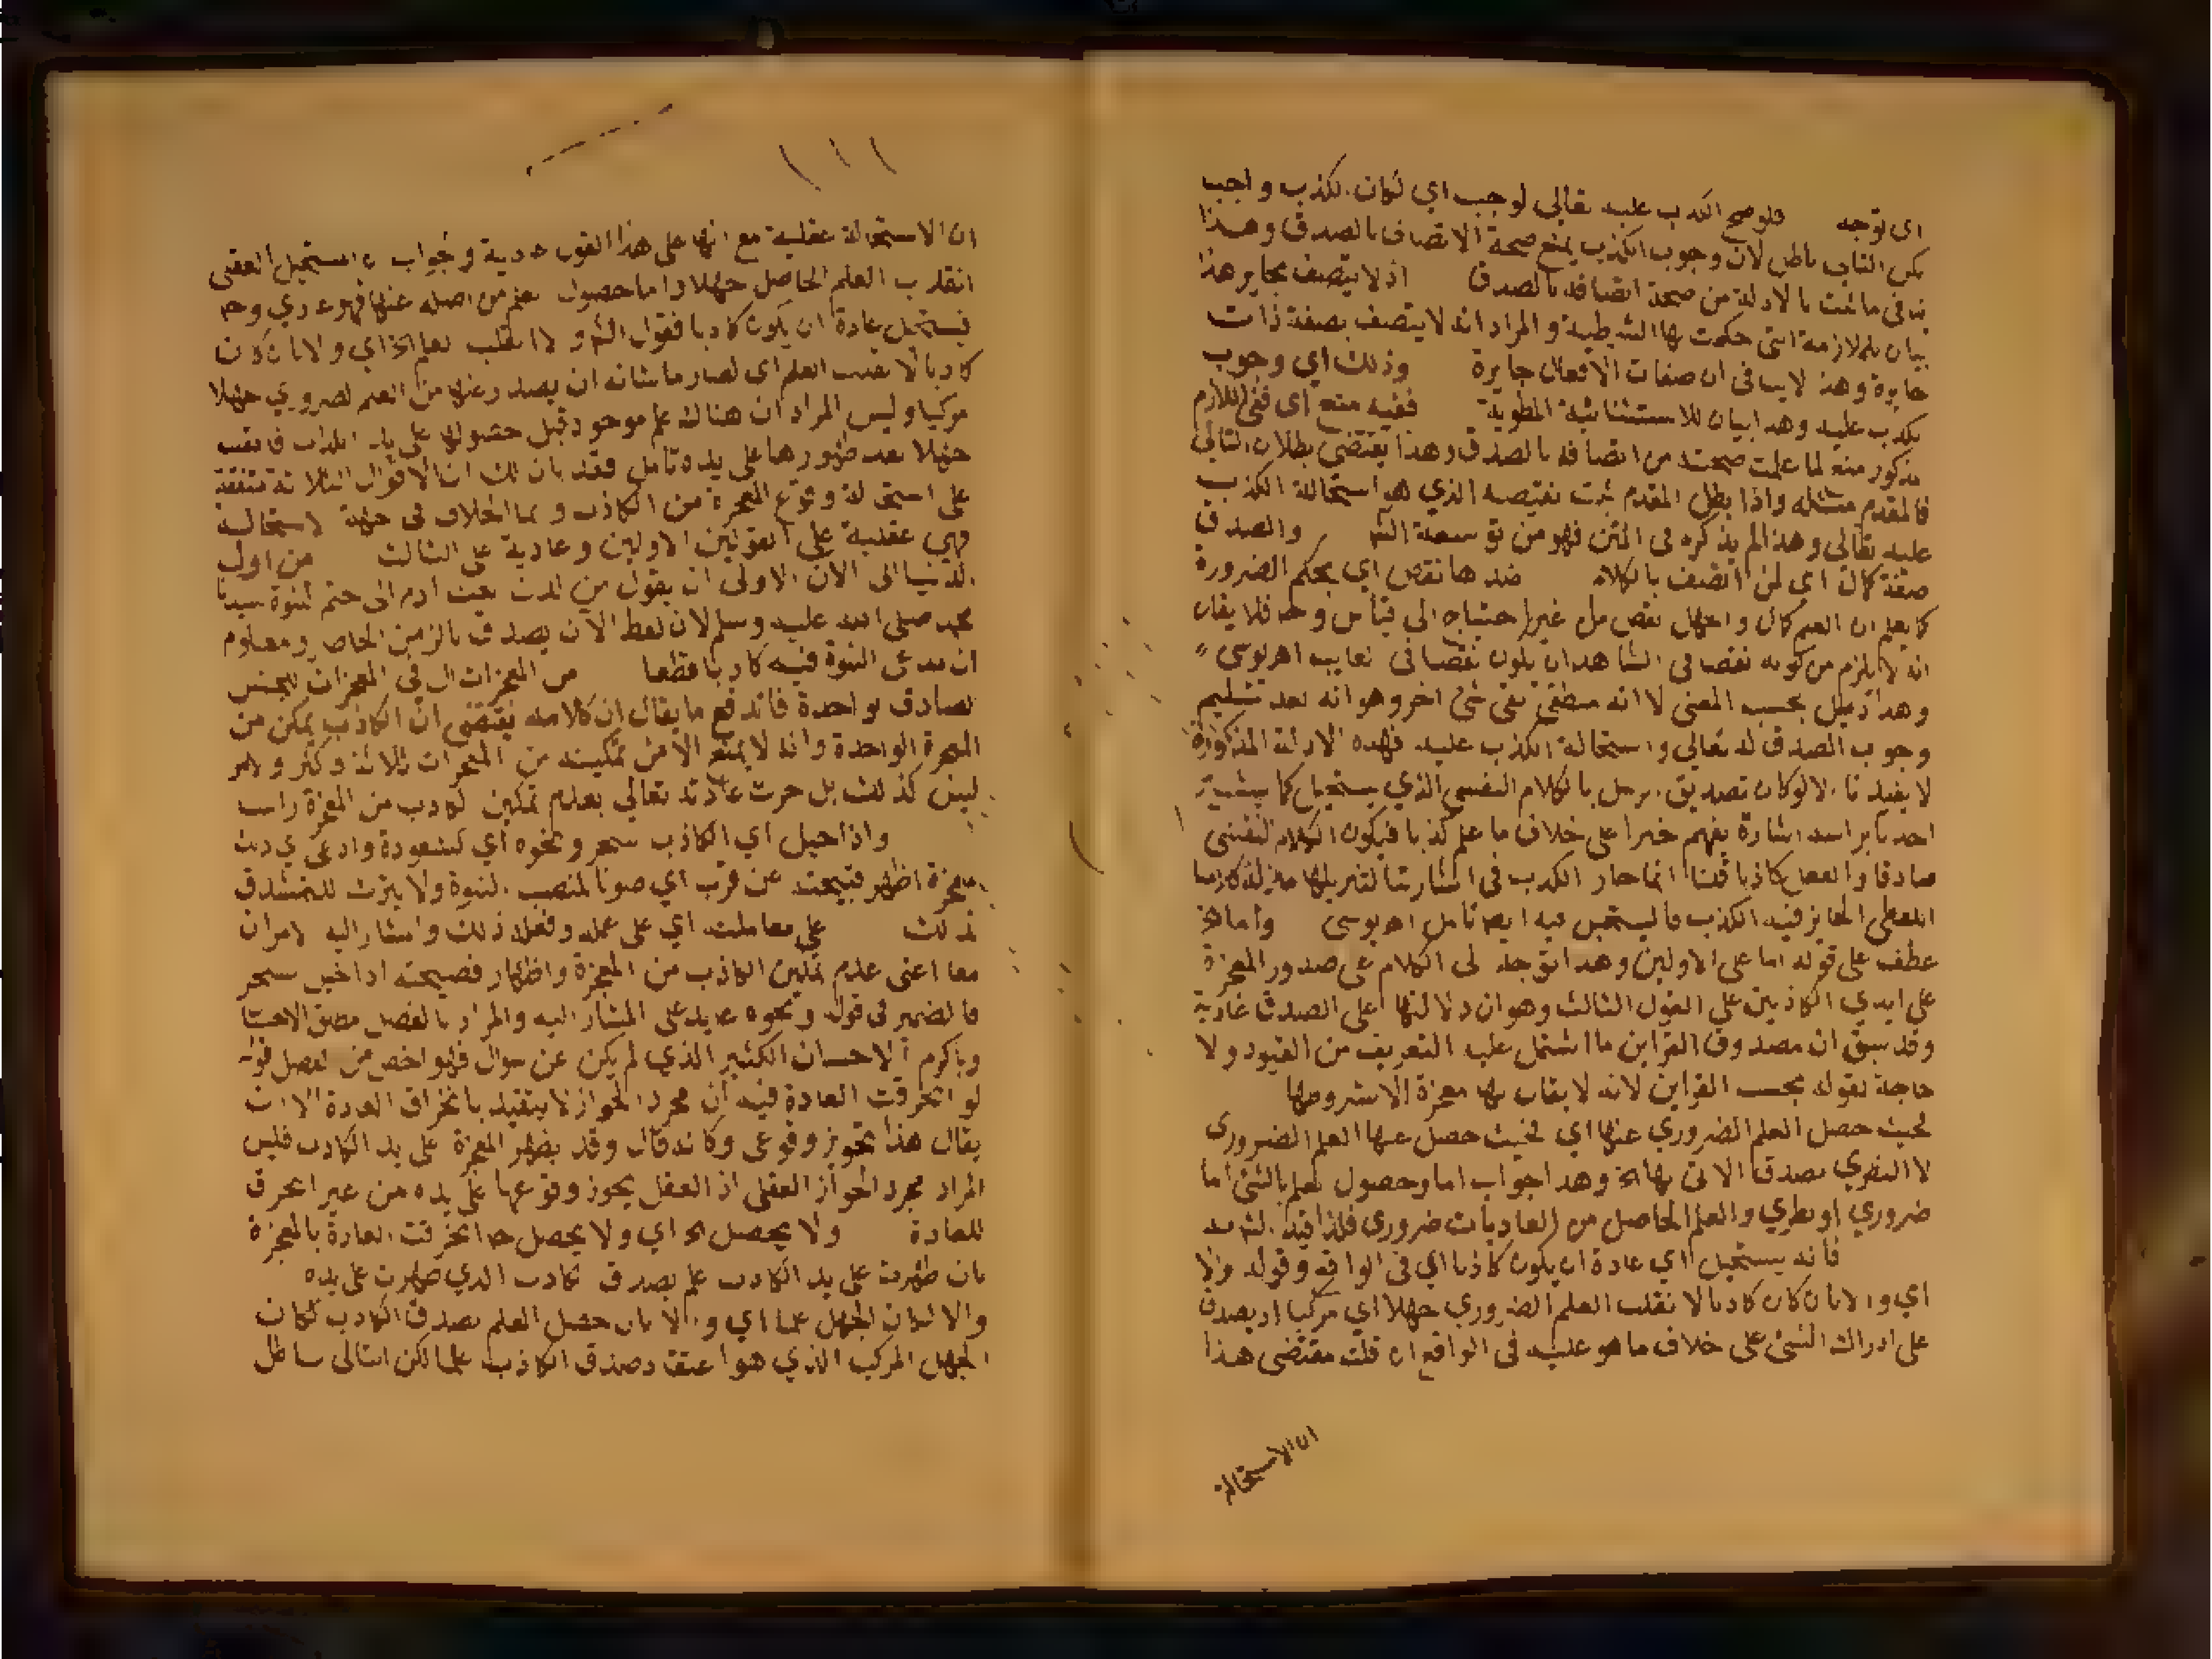 اى توجه فلو صح الكذب عليه تعالى لوجب اي لكان الكذب واجب
لكن التالي باطل لان وجوب الكذب يمنع صحة الاتصاف بالصدق وهذا
ينافى ما ثبت بالادلة من صحة اتصافه بالصدق اذ لا يتصف بجايز هذا
بيان للملازمة التى حكمت بها الشرطية والمراد انه لا يتصف بصفة ذات
جايزة وهذا لا ينافى ان صفات الافعال جايزة وذلك اي وجوب
الكذب عليه وهذا بيان للاستثنائية المطوية ففيه منع اى ففى اللازم
المذكور منع لما علمت صحته من اتصافه بالصدق وهذا يقتضى بطلان التالى
فالمقدم مثله واذا بطل المقدم ثبت نقيضه الذي هو استحالة الكذب
عليه تعالى وهذا لم يذكره فى المتن فهو من توسعة الش والصدق
صفة كمال اى لمن اتصف بالكلام ضدها نقص اي بحكم الضرورة
كما يعلم ان العلم كمال والجهل نقص من غير احتياج الى قياس وح فلا يقال
انه لا يلزم من كونه نقصا فى الشاهد ان يكون نقصا فى الغايب اهـ يوسي
وهذا دليل بحسب المعنى لا انه منطقى بقى شئ اخر وهو انه بعد تسليم
وجوب الصدق له تعالى واستحالة الكذب عليه فهذه الادلة المذكورة
لا يفيدنا الا لو كان تصديق الرسل بالكلام النفسي الذي يستحيل كما يشير
احدنا براسه اشارة يفهم خبرا على خلاف ما علم كذبا فيكون الكلام النفسى
صادقا والفعل كاذبا قلنا انما جاز الكذب فى اشارتنا لتنزيلها منزلة كلامنا
اللفظى الجايز فيه الكذب فاليستحيل فيه ايضا تامل اهـ يوسى واما الخ
عطف على قوله اما على الاولين وهذا توجه الى الكلام على صدور المعجزة
على ايدي الكاذبين على القول الثالث وهو ان دلالتها على الصدق عادية
وقد سبق ان مصدوق القراين ما اشتمل عليه التعريف من القيود ولا
حاجة لقوله بحسب القراين لانه لا يقال لها معجزة الا بشروطها
بحيث حصل العلم الضروري عنها اي بحيث حصل عنها العلم الضروري
لا النظري بصدق الاتى بها الخ وهذا جواب اما وحصول العلم بالشئ اما
ضروري او نظري والعلم الحاصل من العاديات ضروري فلذا قيد الش به
فانه يستحيل اي عادة ان يكون كاذبا اي فى الواقع وقوله والا
اي والا بان كان كاذبا لانقلب العلم الضروري جهلا اي مركبا اذ يصدق
على ادراك الشئ على خلاف ما هو عليه فى الواقع ان قلت مقتضى هذا
ان الاستحالة
ان الاستحالة عقلية مع انها على هذا القول عادية وجواب ان المستحيل العقلى
انقلاب العلم الحاصل جهلا واما حصول العلم من اصله عنها فهو عادي وح
فيستحيل عادة ان يكون كاذبا فقول الش والا انقلب العلم الخ اي والا بان كان
كاذبا لانقلب العلم اى لصار ما شانه ان يصدر عنها من العلم الضروري جهلا
مركبا وليس المراد ان هناك علم موجود قبل حصولها على يد الكذاب فانقلب
جهلا بعد ظهورها على يده تامل فقد بان لك ان الاقوال الثلاثة متفقة
على استحالة وقوع المعجزة من الكاذب وبما الخلاف فى جهة الاستحالة
فهى عقلية على القولين الاولين وعادية على الثالث من اول
الدنيا الى الان الاولى ان يقول من لدن بعث ادم الى ختم النبوة سيدنا
محمد صلى الله عليه وسلم لان لفظ الان يصدق بالزمن الحاضر ومعلوم
ان مدعى النبوة فيه كاذبا قطعا من المعجزات ال فى المعجزات للجنس
الصادق بواحدة فاندفع ما يقال ان كلامه يقتضى ان الكاذب يمكن من
المعجزة الواحدة وانه لا يمنع الا من تمكينه من المعجزات ثلاثة وكثر والامر
ليس كذلك بل جرت عادته تعالى بعدم تمكين الكاذب من المعجزة راسا
واذا خيل اي الكاذب بسحر ونحوه اي كشعوذة وادعى ان ذلك
معجزة اظهر فضيحته عن قرب اي صونا لمنصب النبوة ولا يترك للتمشدق
بذلك على معاملته اي على عمله وفعله ذلك واشار اليه الامران
معا اعنى عدم تمكين الكاذب من المعجزة واظهار فضيحته اذا خيل بسحر
فالضمير فى قوله ونحوه عايد على المشار اليه والمراد بالفضل مطلق الاحسان
وبالكرم الاحسان الكثير الذي لم يكن عن سوال فهو اخص من الفضل قوله
لو انخرقت العادة فيه ان مجرد الجواز لا يتقيد بانخراق العادة الا ان
يقال هذا تجويز وقوعى وكانه قال وقد يظهر المعجزة على يد الكاذب فليس
المراد مجرد الجواز العقلى اذ العقل يجوز وقوعها على يده من غير انخراق
للعادة ولا يحصل الخ اي ولا يحصل ح انخرقت العادة بالمعجزة
بان ظهرت على يد الكاذب علم بصدق الكاذب الذي ظهرت على يده
والا لكان الجهل علما اي والا بان حصل العلم بصدق الكاذب لكان
الجهل المركب الذي هو اعتقاد صدق الكاذب علما لكن التالى باطل